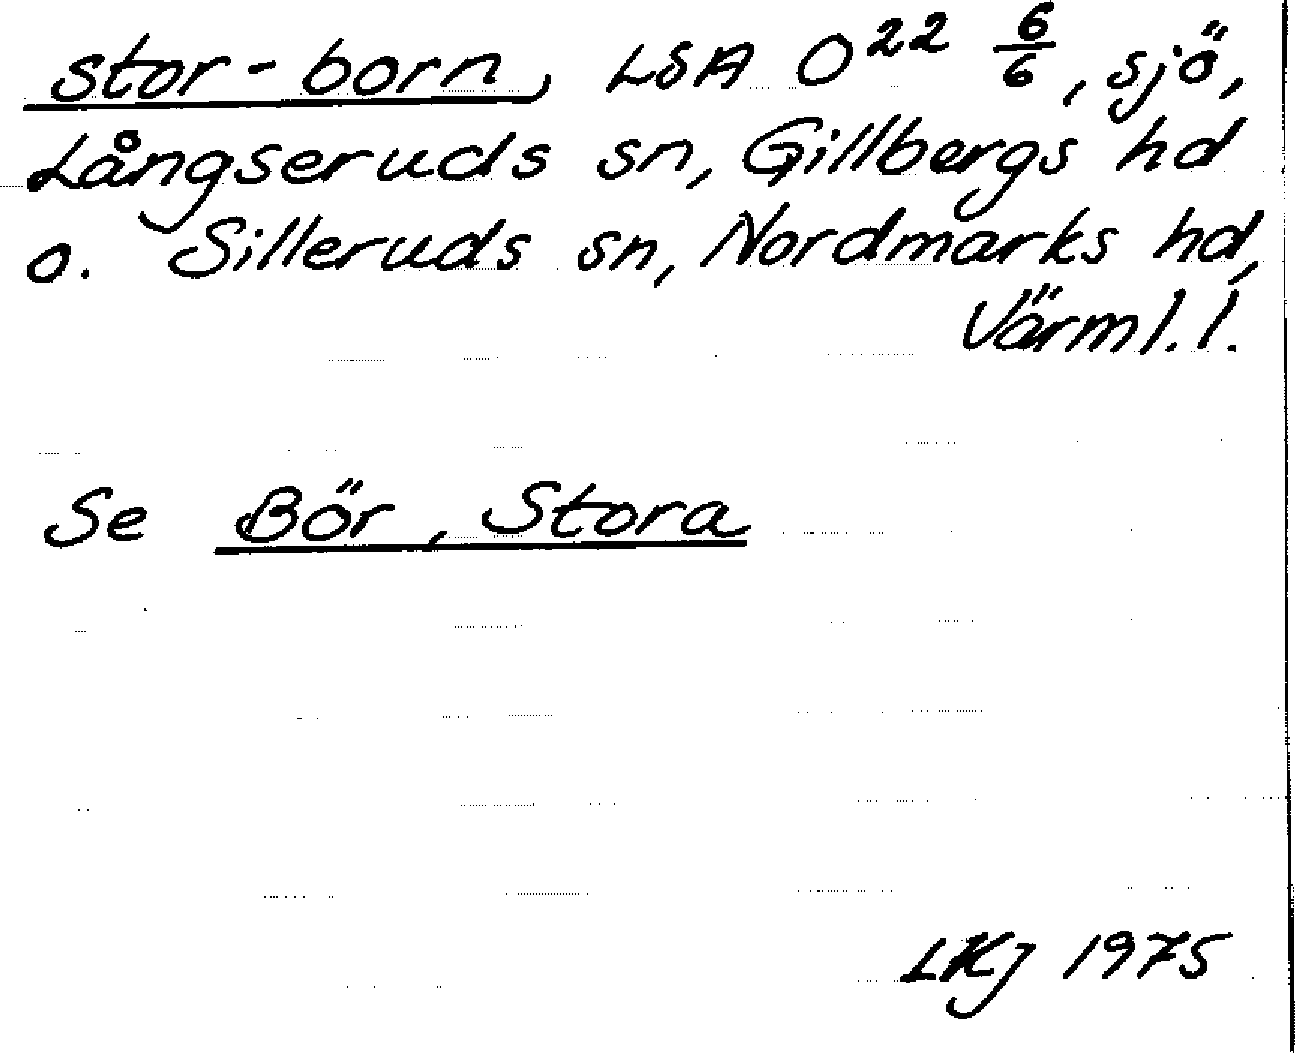 stor-born, LSA O²² 6/6, sjö,
Långseruds sn, Gillbergs hd
o. Silleruds sn, Nordmarks hd,
Värml. l.
Se Bör, Stora
LKj 1975